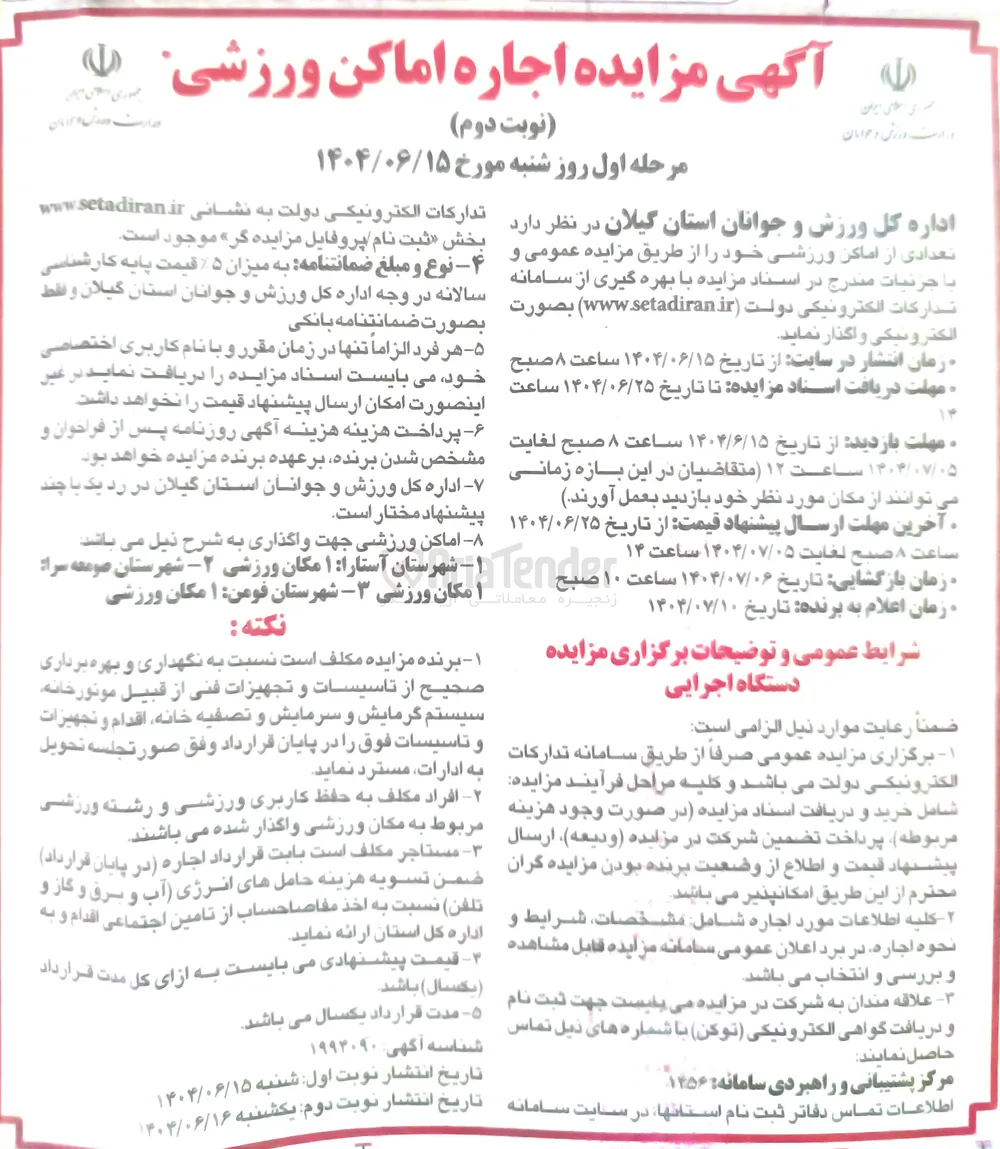 آگهی مزایده اجاره اماکن ورزشی
جمهوری اسلامی ایران
وزارت ورزش و جوانان
جمهوری اسلامی ایران
وزارت ورزش و جوانان
(نوبت دوم)
مرحله اول روز شنبه مورخ ۱۴۰۴/۰۶/۱۵
اداره کل ورزش و جوانان استان گیلان در نظر دارد
تعدادی از اماکن ورزشی خود را از طریق مزایده عمومی و
با جزئیات مندرج در اسناد مزایده با بهره گیری از سامانه
تدارکات الکترونیکی دولت (www.setadiran.ir) بصورت
الکترونیکی واگذار نماید.
• زمان انتشار در سایت: از تاریخ ۱۴۰۴/۰۶/۱۵ ساعت ۸ صبح
• مهلت دریافت اسناد مزایده: تا تاریخ ۱۴۰۴/۰۶/۲۵ ساعت
۱۴
• مهلت بازدید: از تاریخ ۱۴۰۴/۶/۱۵ ساعت ۸ صبح لغایت
۱۴۰۴/۰۷/۰۵ ساعت ۱۲ (متقاضیان در این بازه زمانی
می توانند از مکان مورد نظر خود بازدید بعمل آورند.)
• آخرین مهلت ارسال پیشنهاد قیمت: از تاریخ ۱۴۰۴/۰۶/۲۵
ساعت ۸ صبح لغایت ۱۴۰۴/۰۷/۰۵ ساعت ۱۴
• زمان بازگشایی: تاریخ ۱۴۰۴/۰۷/۰۶ ساعت ۱۰ صبح
• زمان اعلام به برنده: تاریخ ۱۴۰۴/۰۷/۱۰
شرایط عمومی و توضیحات برگزاری مزایده
دستگاه اجرایی
ضمناً رعایت موارد ذیل الزامی است:
۱- برگزاری مزایده عمومی صرفاً از طریق سامانه تدارکات
الکترونیکی دولت می باشد و کلیه مراحل فرآیند مزایده:
شامل خرید و دریافت اسناد مزایده (در صورت وجود هزینه
مربوطه)، پرداخت تضمین شرکت در مزایده (ودیعه)، ارسال
پیشنهاد قیمت و اطلاع از وضعیت برنده بودن مزایده گران
محترم از این طریق امکانپذیر می باشد.
۲-کلیه اطلاعات مورد اجاره شامل: مشخصات، شرایط و
نحوه اجاره، در برد اعلان عمومی سامانه مزایده قابل مشاهده
و بررسی و انتخاب می باشد.
۳- علاقه مندان به شرکت در مزایده می بایست جهت ثبت نام
و دریافت گواهی الکترونیکی (توکن) با شماره های ذیل تماس
حاصل نمایند:
مرکز پشتیبانی و راهبردی سامانه: ۱۴۵۶.
اطلاعات تماس دفاتر ثبت نام استانها، در سایت سامانه
تدارکات الکترونیکی دولت به نشانی www.setadiran.ir
بخش «ثبت نام/پروفایل مزایده گر» موجود است.
۴- نوع و مبلغ ضمانتنامه: به میزان ۵٪ قیمت پایه کارشناسی
سالانه در وجه اداره کل ورزش و جوانان استان گیلان و فقط
بصورت ضمانتنامه بانکی
۵-هر فرد الزاماً تنها در زمان مقرر و با نام کاربری اختصاصی
خود، می بایست اسناد مزایده را دریافت نماید در غیر
اینصورت امکان ارسال پیشنهاد قیمت را نخواهد داشت.
۶- پرداخت هزینه هزینه آگهی روزنامه پس از فراخوان و
مشخص شدن برنده، بر عهده برنده مزایده خواهد بود.
۷- اداره کل ورزش و جوانان استان گیلان در رد یک یا چند
پیشنهاد مختار است.
۸- اماکن ورزشی جهت واگذاری به شرح ذیل می باشد:
۱- شهرستان آستارا: ۱ مکان ورزشی ۲- شهرستان صومعه سرا:
۱ مکان ورزشی ۳- شهرستان فومن: ۱ مکان ورزشی
AriaTender
نکته :
۱- برنده مزایده مکلف است نسبت به نگهداری و بهره برداری
صحیح از تاسیسات و تجهیزات فنی از قبیل موتورخانه،
سیستم گرمایش و سرمایش و تصفیه خانه، اقدام و تجهیزات
و تاسیسات فوق را در پایان قرارداد وفق صورتجلسه تحویل
به ادارات، مسترد نماید.
۲- افراد مکلف به حفظ کاربری ورزشی و رشته ورزشی
مربوط به مکان ورزشی واگذار شده می باشند.
۳- مستاجر مکلف است بابت قرارداد اجاره (در پایان قرارداد)
ضمن تسویه هزینه حامل های انرژی (آب و برق و گاز و
تلفن) نسبت به اخذ مفاصاحساب از تامین اجتماعی اقدام و به
اداره کل استان ارائه نماید.
۴- قیمت پیشنهادی می بایست به ازای کل مدت قرارداد
(یکسال) باشد.
۵- مدت قرارداد یکسال می باشد.
شناسه آگهی: ۱۹۹۴۰۹۰
تاریخ انتشار نوبت اول: شنبه ۱۴۰۴/۰۶/۱۵
تاریخ انتشار نوبت دوم: یکشنبه ۱۴۰۴/۰۶/۱۶